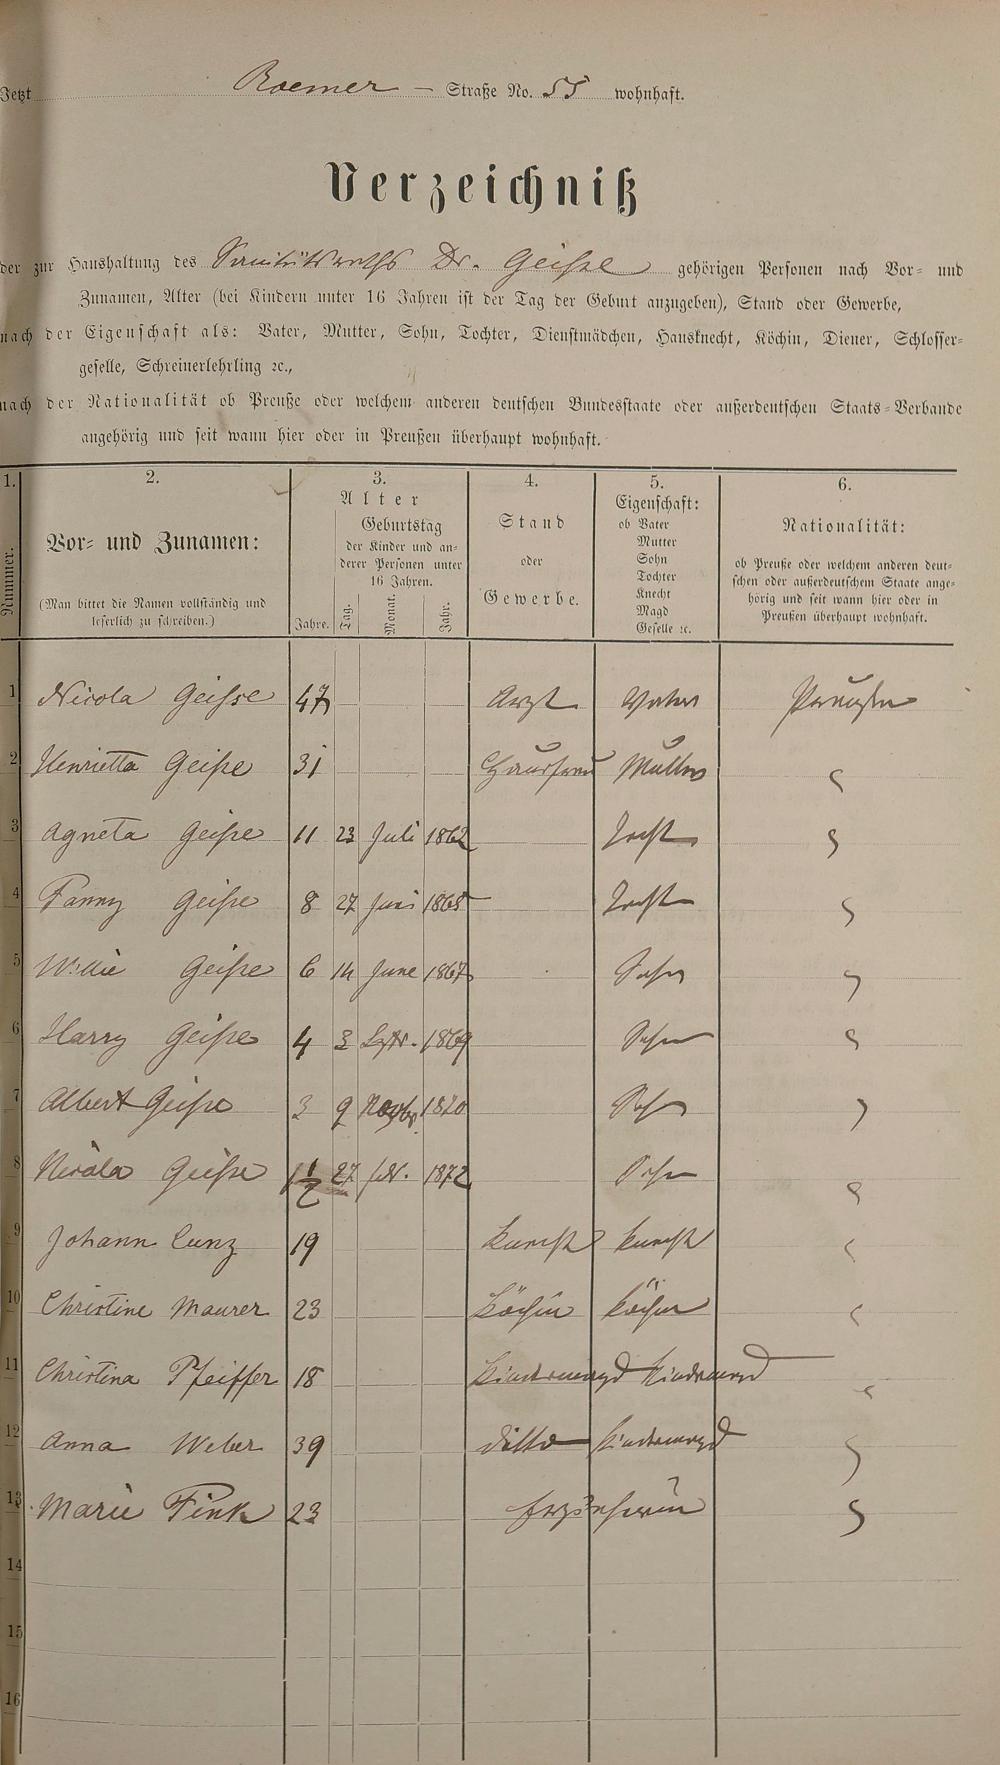 Jetzt Roemer – Straße No. 55 wohnhaft.
Verzeichniß
der zur Haushaltung des Sanitätsraths Dr. Geiße gehörigen Personen nach Vor- und
Zunamen, Alter (bei Kindern unter 16 Jahren ist der Tag der Geburt anzugeben), Stand oder Gewerbe,
nach der Eigenschaft als: Vater, Mutter, Sohn, Tochter, Dienstmädchen, Hausknecht, Köchin, Diener, Schlosser-
geselle, Schreinerlehrling ꝛc.,
nach der Nationalität ob Preuße oder welchem anderen deutschen Bundesstaate oder außerdeutschen Staats-Verbande
angehörig und seit wann hier oder in Preußen überhaupt wohnhaft.
1. 2. 3. 4. 5. 6.
Nummer.
Vor- und Zunamen:
(Man bittet die Namen vollständig und
leserlich zu schreiben.)
Alter
Jahre.
Geburtstag
der Kinder und an-
derer Personen unter
16 Jahren.
Tag. Monat. Jahr.
Stand
oder
Gewerbe.
Eigenschaft:
ob Vater
Mutter
Sohn
Tochter
Knecht
Magd
Geselle ꝛc.
Nationalität:
ob Preuße oder welchem anderen deut-
schen oder außerdeutschem Staate ange-
hörig und seit wann hier oder in
Preußen überhaupt wohnhaft.
1 Nicola Geisse 47 Arzt Vater Preußen
2 Henrietta Geiße 31 Hausfrau Mutter
3 Agneta Geiße 11 23 Juli 1862 Tocht
4 Fanny Geiße 8 27 Juni 1865 Tocht
5 Willie Geiße 6 14 June 1867 Sohn
6 Harry Geiße 4 3 Septr. 1869 Sohn
7 Albert Geiße 3 9 Novbr 1870 Sohn
8 Nicola Geiße 1½ 27 feb. 1872 Sohn
9 Johann Cunz 19 Knecht Knecht
10 Christine Maurer 23 Köchin Köchin
11 Christina Pfeiffer 18 Kindermagd Kindermagd
12 Anna Weber 39 ditto Kindermagd
13 Marie Fink 23 Erzieherin
14
15
16